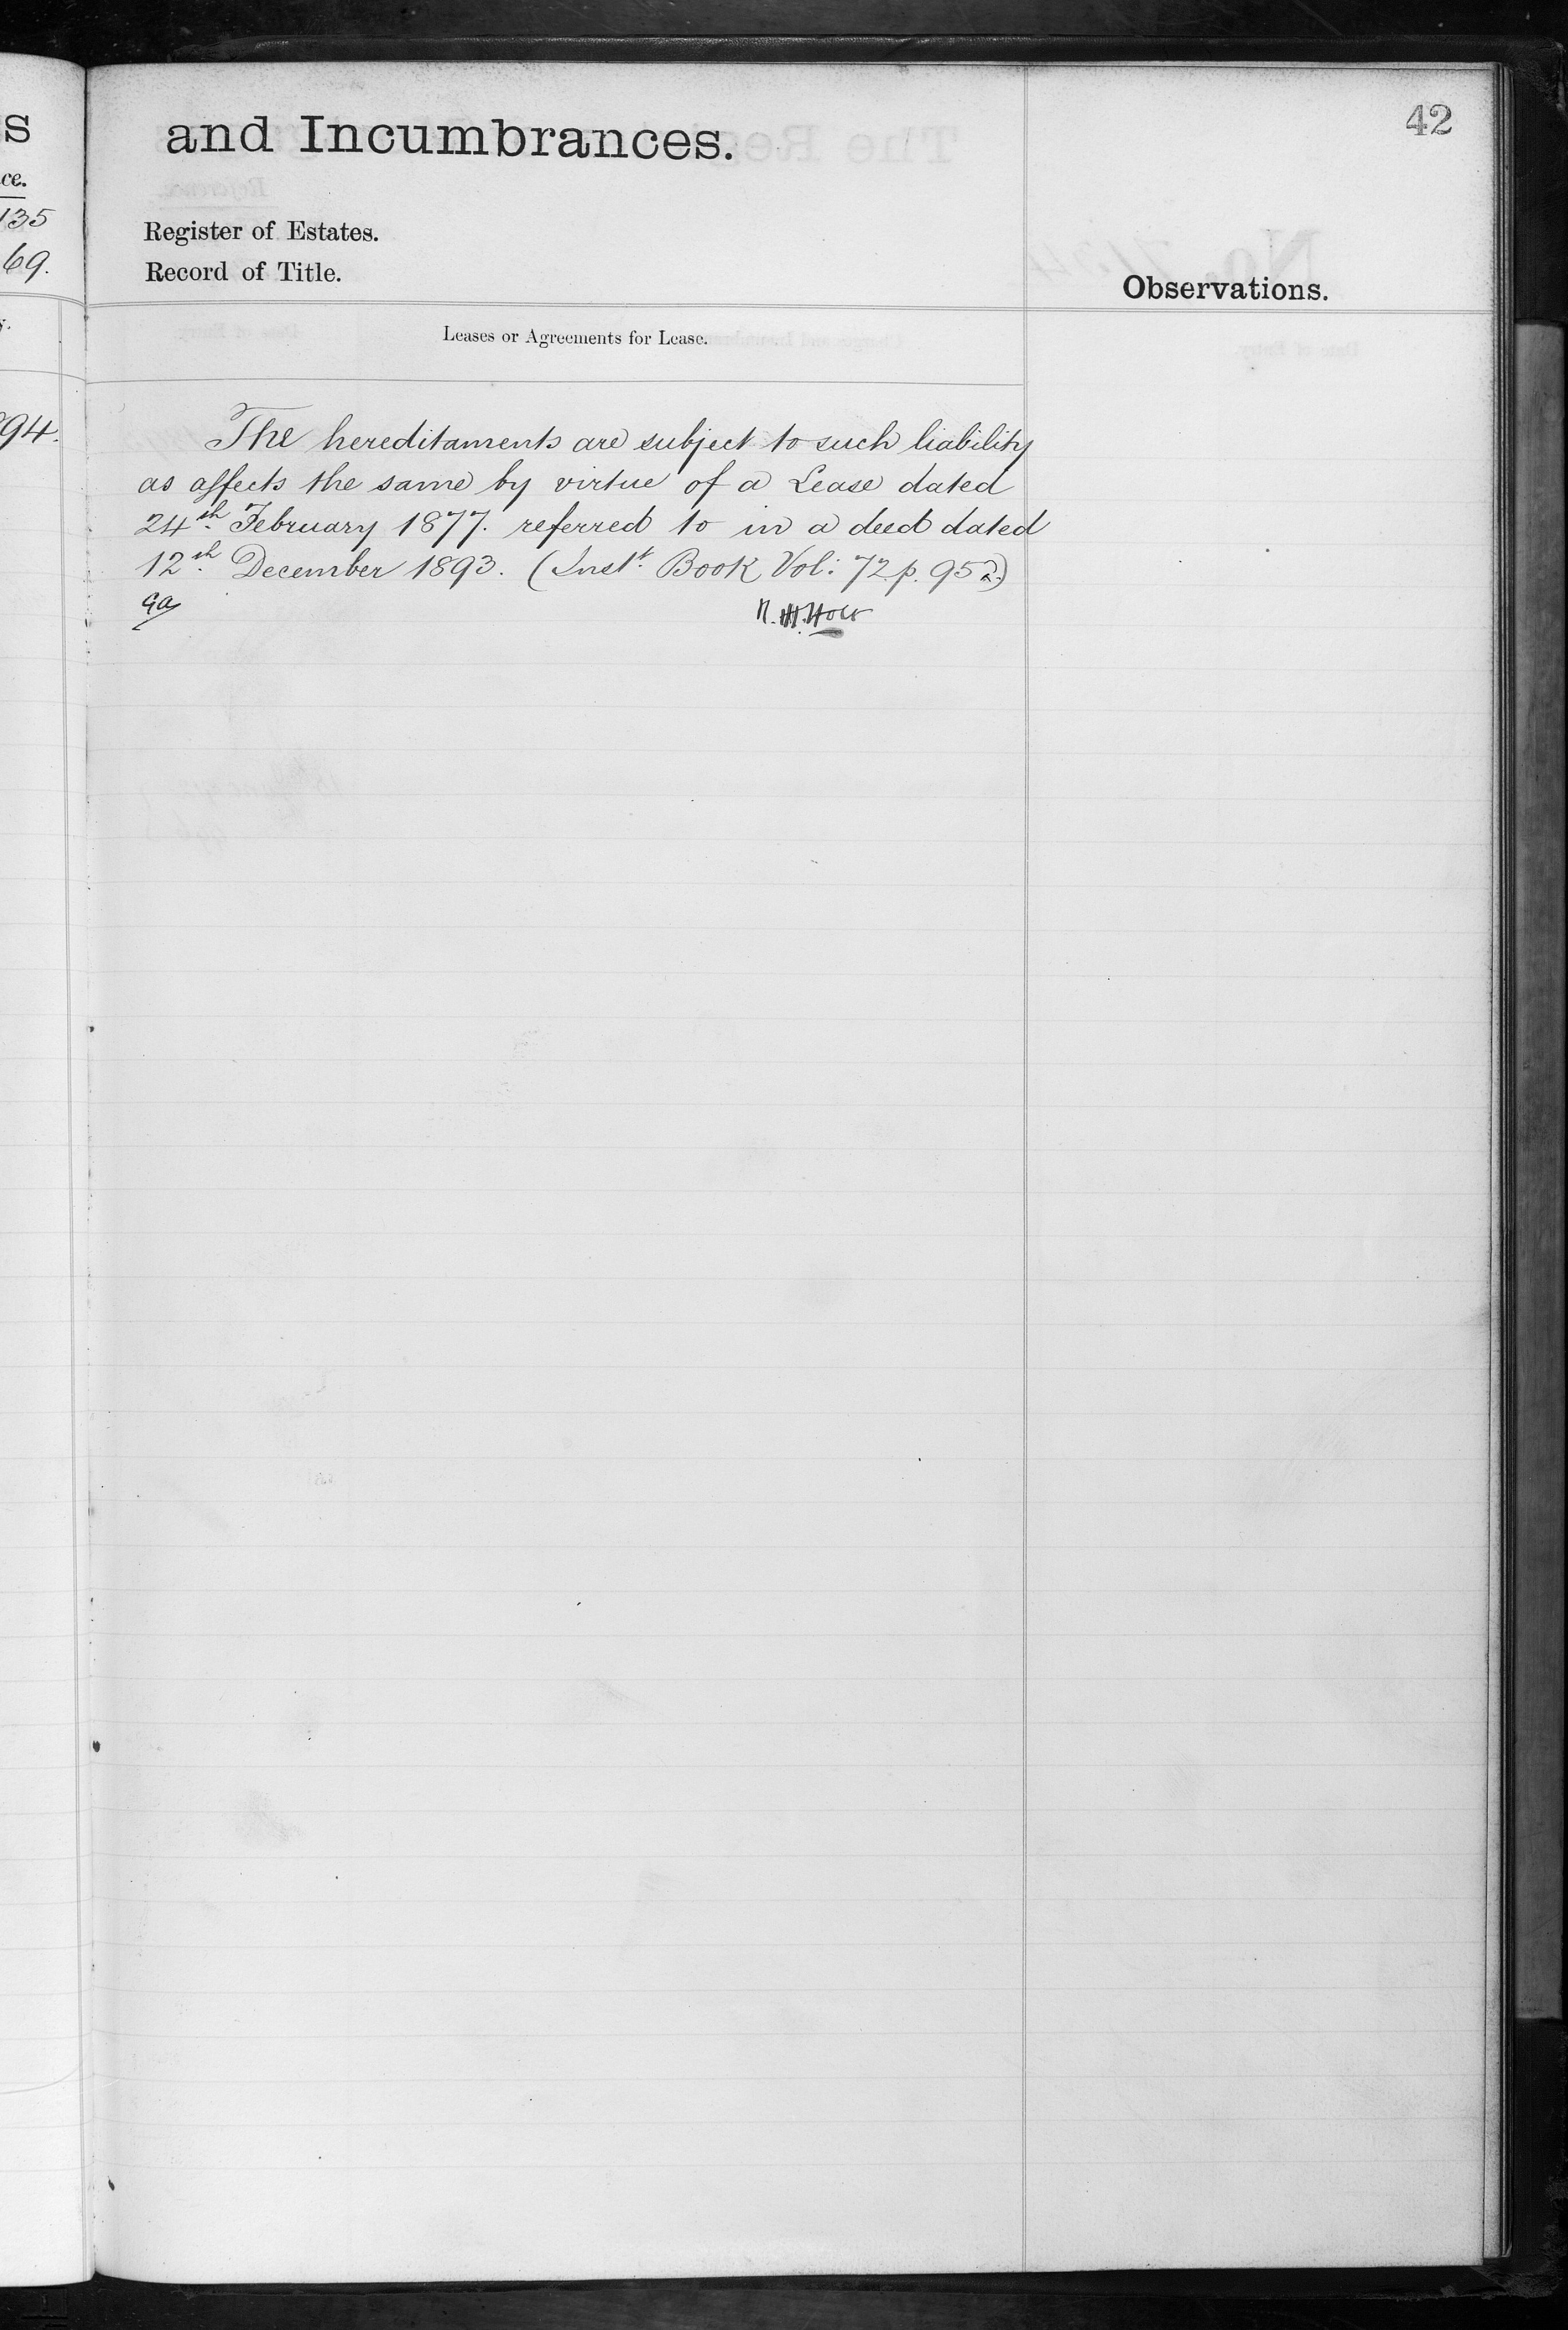 s
ce.
135
69.
y.
94.
42
and Incumbrances.
Register of Estates.
Record of Title.
Observations.
Leases or Agreements for Lease.
The hereditaments are subject to such liability
as affects the same by virtue of a Lease dated
24th February 1877. referred to in a deed dated
12th December 1893. (Inst. Book Vol: 72 p. 952.)
R. H. Holt